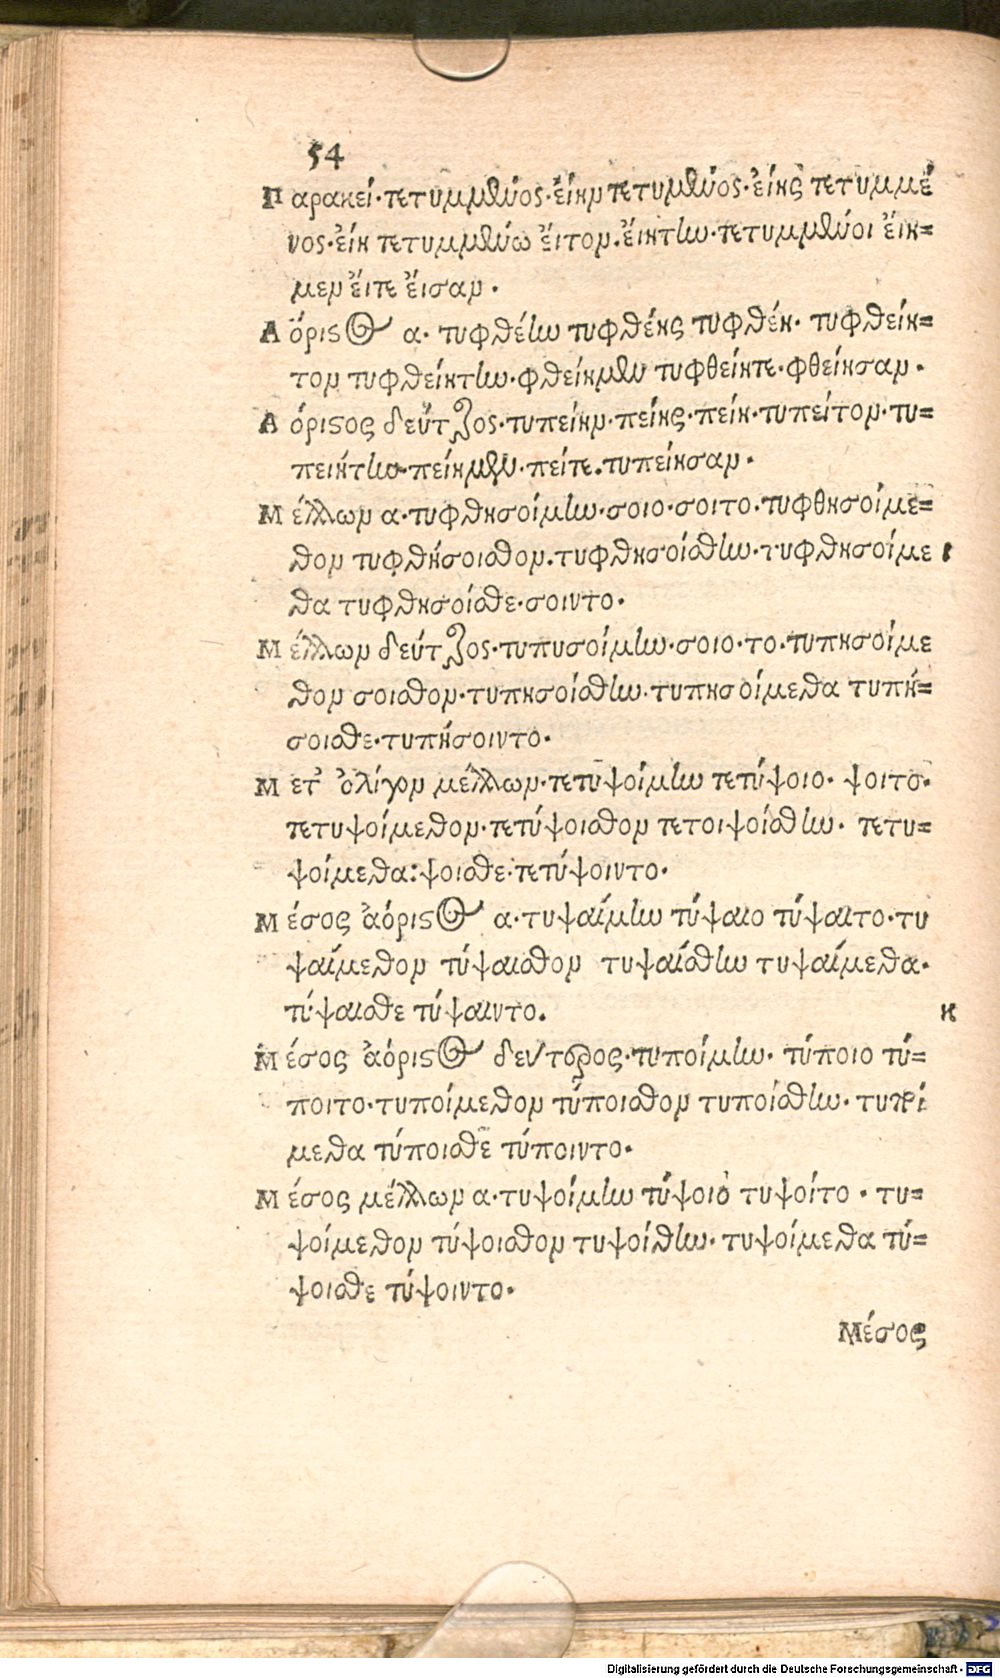 54
Παρακεί·τετυμμένος·εἴην τετυμμένος·εἴης τετυμμέ
νος·εἴη τετυμμένω εἴιτον.εἰήτην·τετυμμένοι εἴη=
μεν εἴιτε εἴισαν.
Αόριστος α· τυφθείην τυφθείης τυφθείη· τυφθείη=
τον τυφθειήτην·φθείημεν τυφθείητε·φθείησαν.
Αόριστος δεύτερος·τυπείην·πείης·πείη·τυπείτον·τυ=
πειήτην·πείημεν·πείτε.τυπείησαν.
Μέλλων α·τυφθησοίμην·σοιο·σοιτο.τυφθησοίμε=
θον τυφθήσοισθον.τυφθησοίσθην·τυφθησοίμε
θα τυφθησοίσθε·σοιντο.
Μέλλων δεύτερος·τυπυσοίμην·σοιο·το.τυπησοίμε
θον σοισθον·τυπησοίσθην·τυπησοίμεθα τυπή=
σοισθε·τυπήσοιντο.
Μετ' ὀλίγον μέλλων·τετυψοίμην τετύψοιο· ψοιτο·
τετυψοίμεθον·τετύψοισθον τετοιψοίσθην. τετυ=
ψοίμεθα:ψοισθε·τετύψοιντο.
Μέσος ἀόριστος α·τυψαίμην τύψαιο τύψαιτο·τυ
ψαίμεθον τύψαισθον τυψαίσθην τυψαίμεθα.
τύψαισθε τύψαιντο.
Μέσος ἀόριστος δεύτερος·τυποίμην. τύποιο τύ=
ποιτο·τυποίμεθον τύποισθον τυποίσθην. τυποί
μεθα τύποισθε τύποιντο.
Μέσος μέλλων α·τυψοίμην τύψοιο τυψοίτο · τυ=
ψοίμεθον τύψοισθον τυψοίθην. τυψοίμεθα τύ=
ψοισθε τύψοιντο.
Μέσος
Digitalisierung gefördert durch die Deutsche Forschungsgemeinschaft - DFG